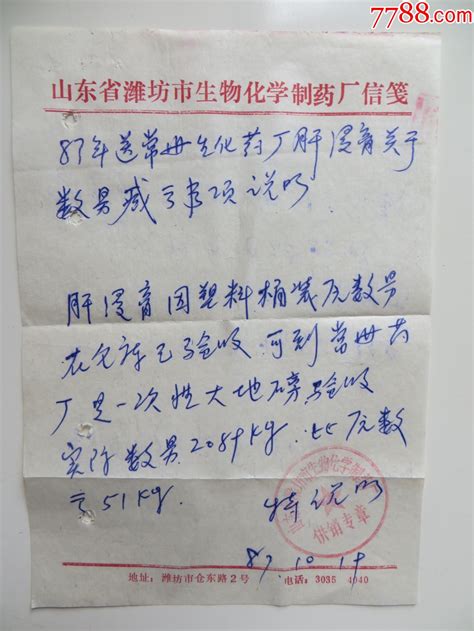 7788.com
山东省潍坊市生物化学制药厂信笺
87年送常州生化药厂肝浸膏关于
数量减亏事项说明
肝浸膏因塑料桶装原数量
在仓库已验收 可到常州药
厂是一次性大地磅验收
实际数量2089kg. 比原数
亏51kg. 特说明
供销专章
87.10.19
地址：潍坊市仓东路2号 电话：3035 4040